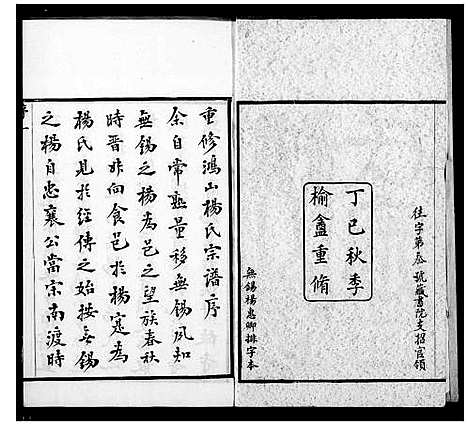 往字第叁號藏書阮文招官領
丁巳秋季
榆盫重脩
無錫楊惠卿排字本
重修鴻山楊氏宗譜序
余自常熟量移無錫夙知
無錫之楊為邑之望族春秋
時晋羊舌向食邑於楊寔為
楊氏見於經傳之始按無錫
之楊自忠襄公當宗南渡時